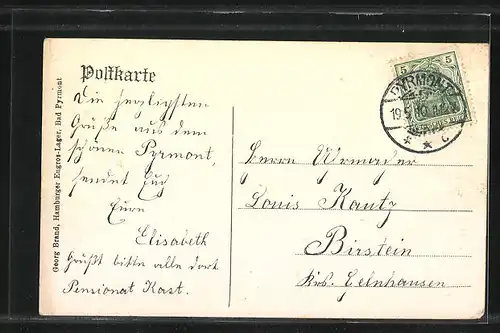 Postkarte
Die herzligsten
Grüße aus dem
schönen Pyrmont,
sendet Euch
Eure
Elisabeth
Grüßt bitte alle dort
Pensionat Kast.
Georg Brand, Hamburger Engros-Lager, Bad Pyrmont
5 5
PYRMONT
19.
* * c
Herrn Uhrmacher
Louis Kautz
Birstein
Krs. Gelnhausen